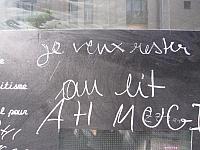 je veux rester
au lit
AH MOGI
itisme
l pour